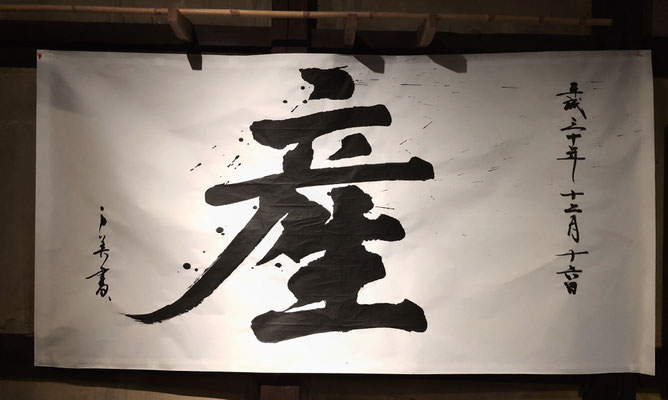 平成三十年十二月十六日
産
美書